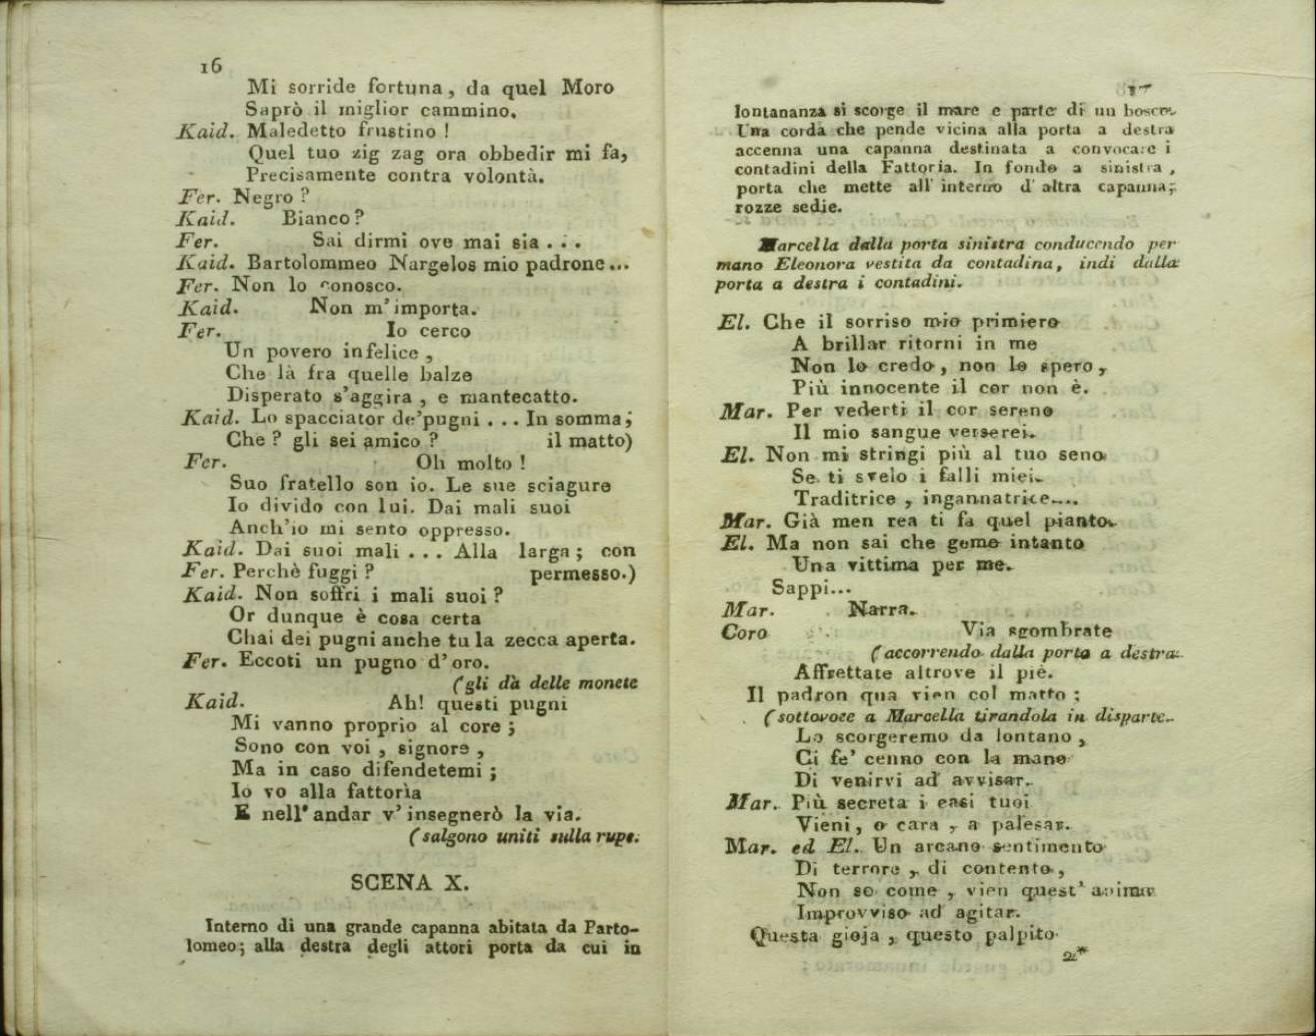 16
Mi sorride fortuna, da quel Moro
Saprò il miglior cammino.
Kaid. Maledetto frustino !
Quel tuo zig zag ora obbedir mi fa,
Precisamente contra volontà.
Fer. Negro ?
Kaid. Bianco ?
Fer. Sai dirmi ove mai sia . . .
Kaid. Bartolommeo Nargelos mio padrone...
Fer. Non lo conosco.
Kaid. Non m'importa.
Fer. Io cerco
Un povero infelice ,
Che là fra quelle balze
Disperato s'aggira , e mantecatto.
Kaid. Lo spacciator de'pugni . . . In somma;
Che ? gli sei amico ? il matto)
Fer. Oh molto !
Suo fratello son io. Le sue sciagure
Io divido con lui. Dai mali suoi
Anch'io mi sento oppresso.
Kaid. Dai suoi mali . . . Alla larga ; con
Fer. Perchè fuggi ? permesso.)
Kaid. Non soffri i mali suoi ?
Or dunque è cosa certa
Chai dei pugni anche tu la zecca aperta.
Fer. Eccoti un pugno d'oro.
(gli dà delle monete
Kaid. Ah! questi pugni
Mi vanno proprio al core ;
Sono con voi , signore ,
Ma in caso difendetemi ;
Io vo alla fattorìa
E nell'andar v'insegnerò la via.
(salgono uniti sulla rupe.
SCENA X.
Interno di una grande capanna abitata da Parto-
lomeo; alla destra degli attori porta da cui in
17
lontananza si scorge il mare e parte di un bosco.
Una corda che pende vicina alla porta a destra
accenna una capanna destinata a convocare i
contadini della Fattoria. In fondo a sinistra ,
porta che mette all' interno d' altra capanna;
rozze sedie.
Marcella dalla porta sinistra conducendo per
mano Eleonora vestita da contadina, indi dalla
porta a destra i contadini.
El. Che il sorriso mio primiero
A brillar ritorni in me
Non lo credo, non lo spero,
Più innocente il cor non è.
Mar. Per vederti il cor sereno
Il mio sangue verserei.
El. Non mi stringi più al tuo seno
Se ti svelo i falli miei.
Traditrice , ingannatrice....
Mar. Già men rea ti fa quel pianto.
El. Ma non sai che geme intanto
Una vittima per me.
Sappi...
Mar. Narra.
Coro Via sgombrate
(accorrendo dalla porta a destra.
Affrettate altrove il piè.
Il padron qua vien col matto ;
(sottovoce a Marcella tirandola in disparte.
Lo scorgeremo da lontano ,
Ci fe' cenno con la mano
Di venirvi ad avvisar.
Mar. Più secreta i casi tuoi
Vieni, o cara , a palesar.
Mar. ed El. Un arcano sentimento
Di terrore , di contento ,
Non so come , vien quest' anima
Improvviso ad agitar.
Questa gioja , questo palpito
2*